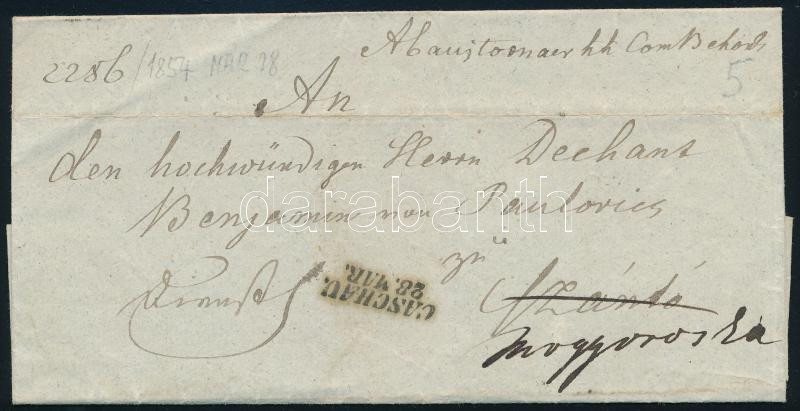 2286/1854 MAR 28
Abaujtornaer kk Com Behörde
5
An
den hochwürdigen Herrn Dechant
Benjamin von Pavlovics
zu
Dienst
CASCHAU.
28. MAR.
Szántó
Mogyoroska
darabanth